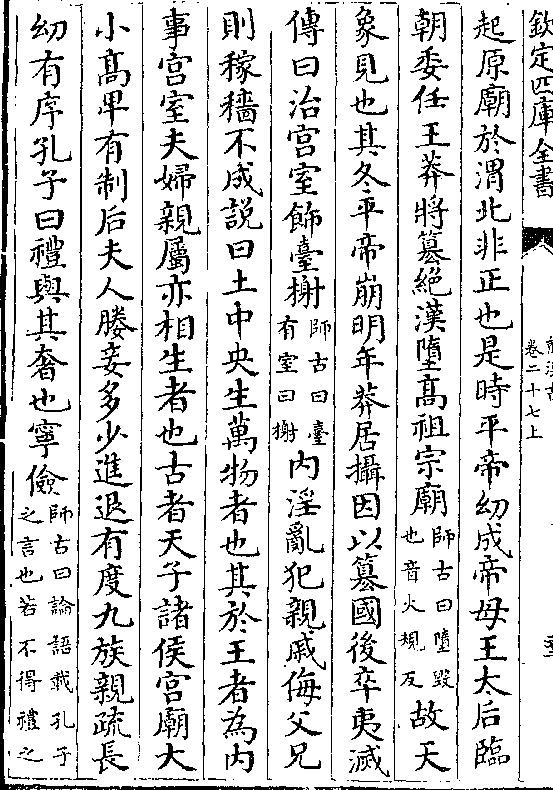 欽定四庫全書
卷二十七上
起原廟於渭北非正也是時平帝幼成帝母王太后臨
朝委任王莽將簒絶漢墮髙祖宗廟師古曰墮毁也音火規反故天
象見也其冬平帝崩明年莽居攝因以簒國後卒夷滅
傳曰治宫室飾臺榭師古曰臺有室曰榭内淫亂犯親戚侮父兄
則稼穡不成説曰土中央生萬物者也其於王者為内
事宫室夫婦親屬亦相生者也古者天子諸侯宫廟大
小髙卑有制后夫人媵妾多少進退有度九族親疏長
幼有序孔子曰禮與其奢也寧儉師古曰論語載孔子之言也若不得禮之